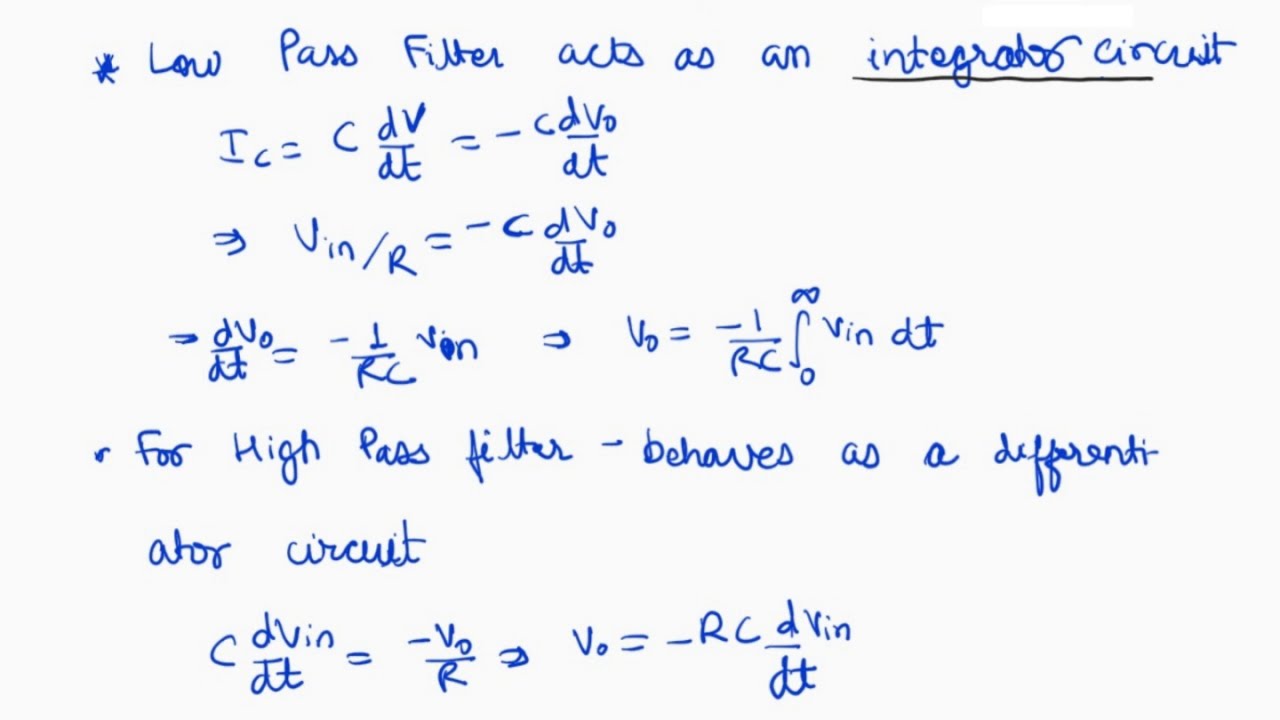 * Low Pass Filter acts as an integrator circuit
I_C = C dV/dt = -C dV₀/dt
⇒ Vin/R = -C dV₀/dt
→ dV₀/dt = -1/RC Vin ⇒ V₀ = -1/RC ∫₀^∞ Vin dt
• For High Pass filter - behaves as a differenti-
ator circuit
C dVin/dt = -V₀/R ⇒ V₀ = -RC dVin/dt